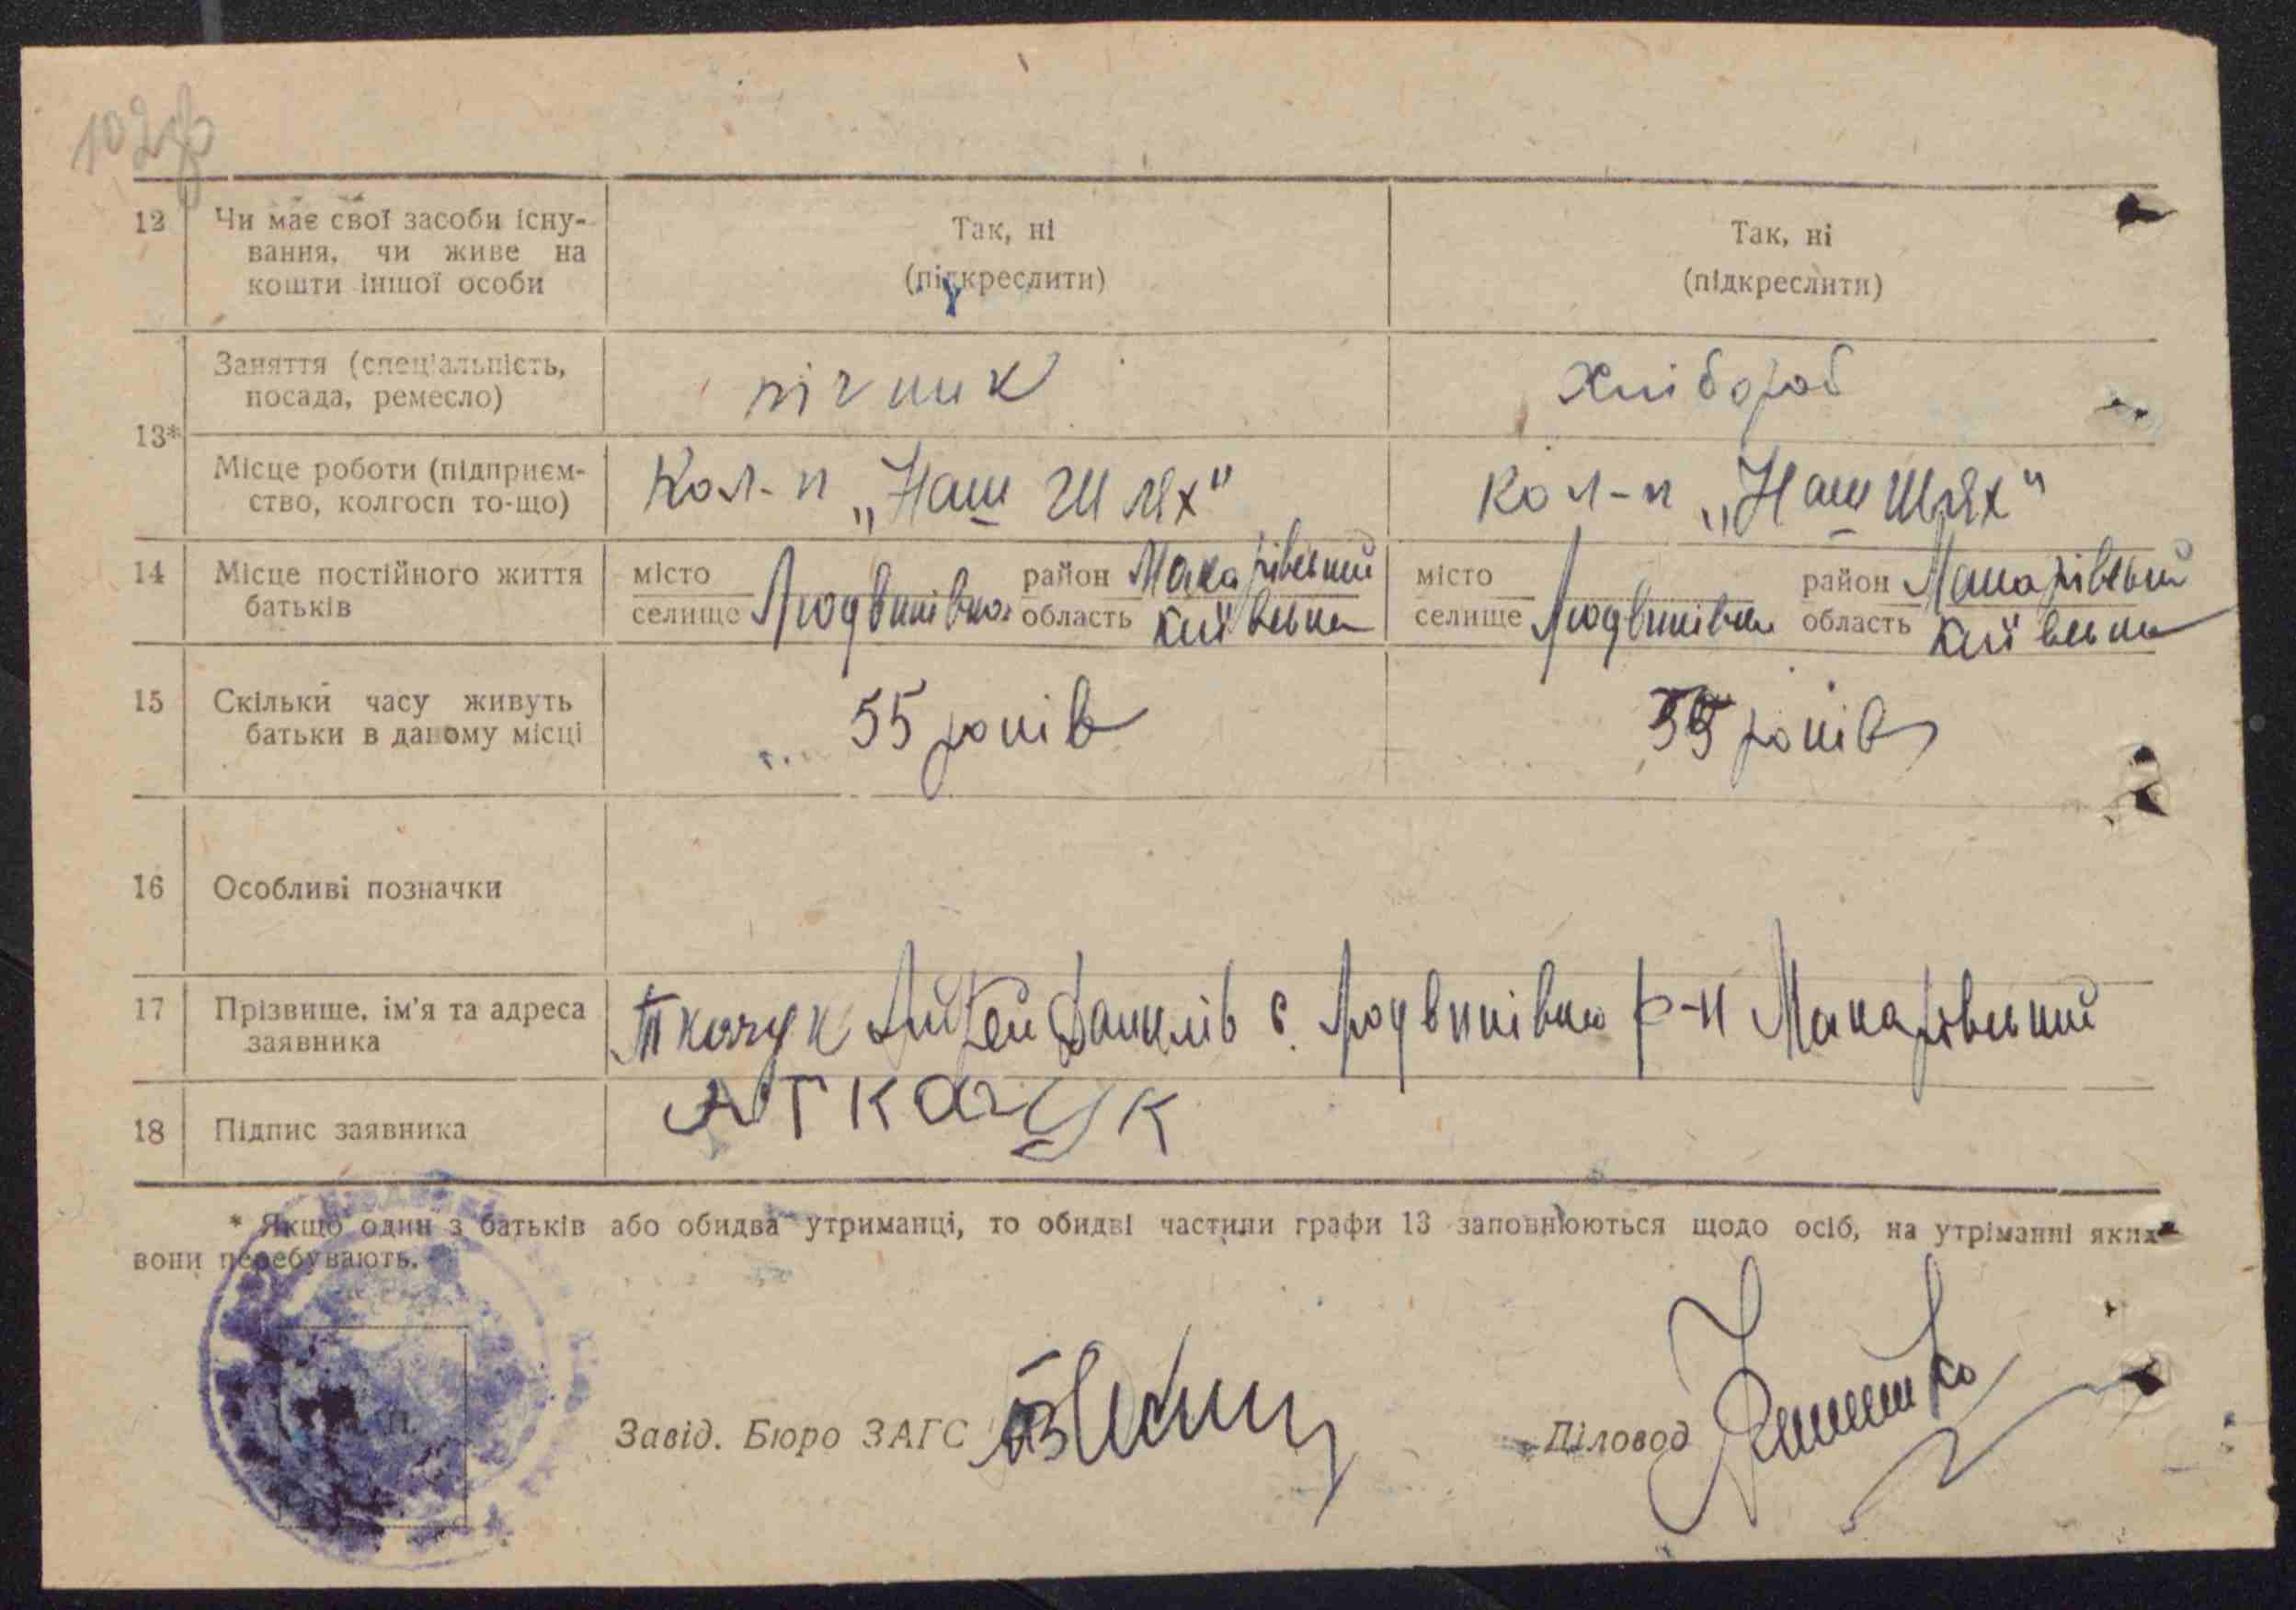 102зв
12 Чи має свої засоби існу-
вання, чи живе на
кошти іншої особи
Так, ні
(підкреслити)
Так, ні
(підкреслити)
13*
Заняття (спеціальність,
посада, ремесло)
пічник
хлібороб
Місце роботи (підприєм-
ство, колгосп то-що)
Кол-п „Наш Шлях"
Кол-п „Наш Шлях"
14 Місце постійного життя
батьків
місто
селище Людвинівка
район Макарівський
область Київська
місто
селище Людвинівка
район Макарівський
область Київська
15 Скільки часу живуть
батьки в даному місці
55 років
55 років
16 Особливі позначки
17 Прізвище, ім'я та адреса
заявника
Ткачук Данилів с. Людвинівка р-н Макарівський
18 Підпис заявника
А Ткачук
* Якщо один з батьків або обидва утриманці, то обидві частини графи 13 заповнюються щодо осіб, на утріманні яких
вони перебувають.
М. П.
Завід. Бюро ЗАГС
Діловод